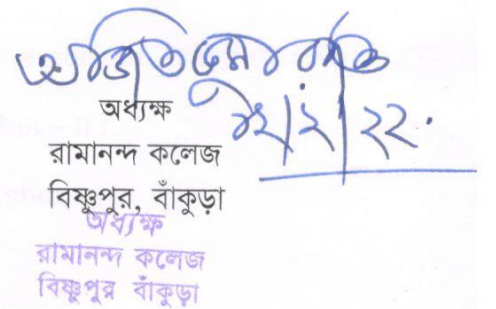 অধ্যক্ষ
রামানন্দ কলেজ
বিষ্ণুপুর, বাঁকুড়া
অধ্যক্ষ
রামানন্দ কলেজ
বিষ্ণুপুর বাঁকুড়া